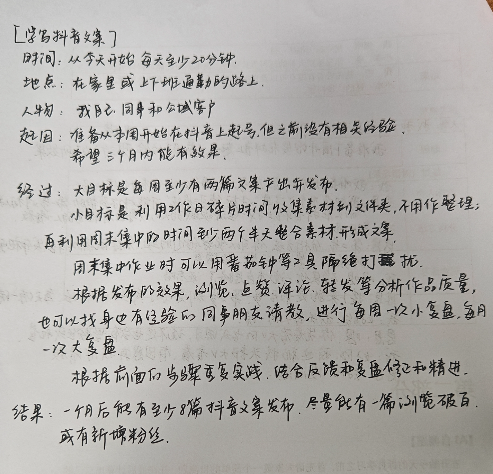 [学写抖音文案]
时间：从今天开始 每天至少20分钟.
地点：在家里或上下班通勤的路上.
人物：我自己 同事和公域客户
起因：准备从本周开始在抖音上起号,但之前没有相关经验.
希望三个月内能有效果.
经过：大目标是每周至少有两篇文案产出并发布.
小目标是利用工作日碎片时间收集素材到文件夹,不用作整理;
再利用周末集中的时间至少两个半天整合素材,形成文案.
周末集中作业时可以用番茄钟等工具隔绝打扰.
根据发布的效果,浏览、点赞评论、转发等分析作品质量,
也可以找身边有经验的同事朋友请教,进行每周一次小复盘,每月
一次大复盘
根据前面的步骤重复实践.结合反馈和复盘修正和精进.
结果：一个月后能有至少8篇抖音文案发布.尽量能有一篇浏览破百.
或有新增粉丝.